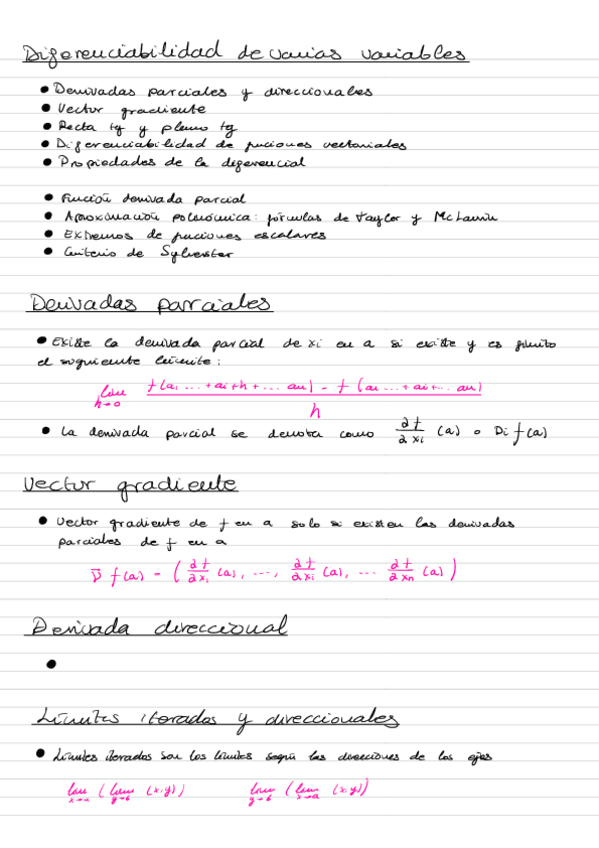 Diferenciabilidad de varias variables
• Derivadas parciales y direccionales
• Vector gradiente
• Recta tg y plano tg
• Diferenciabilidad de funciones vectoriales
• Propiedades de la diferencial
• Función derivada parcial
• Aproximación polinómica: fórmulas de Taylor y McLaurin
• Extremos de funciones escalares
• Criterio de Sylvester
Derivadas parciales
• Existe la derivada parcial de xi en a si existe y es finito
el siguiente límite:
lim h→0 (f(a1 ... + ai + h + ... an) - f(a1 ... + ai + ... an)) / h
• La derivada parcial se denota como ∂f/∂xi (a) o Di f(a)
Vector gradiente
• Vector gradiente de f en a solo si existen las derivadas
parciales de f en a
∇ f(a) = (∂f/∂x1 (a), ..., ∂f/∂xi (a), ... ∂f/∂xn (a))
Derivada direccional
•
Límites iterados y direccionales
• Límites iterados son los límites según las direcciones de los ejes
lim x→a (lim y→b (x,y)) lim y→b (lim x→a (x,y))